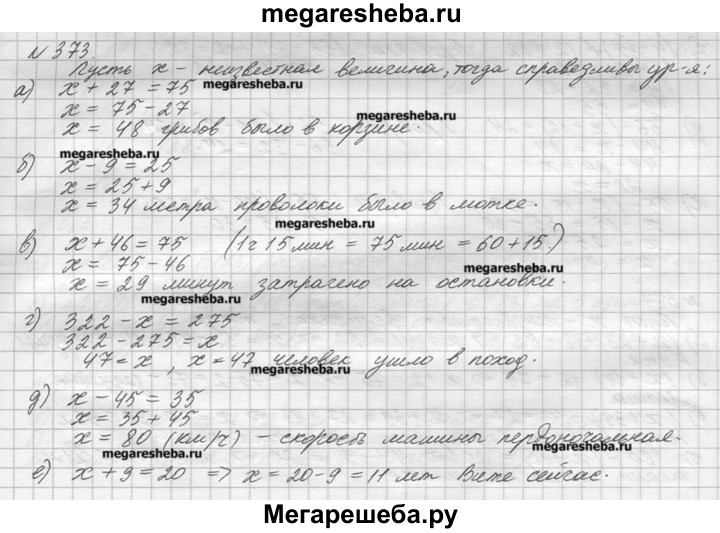 megaresheba.ru
№ 373.
Пусть x - неизвестная величина, тогда справедливы ур-я:
а) x + 27 = 75 megaresheba.ru
x = 75 - 27
x = 48 грибов было в корзине. megaresheba.ru
megaresheba.ru
б) x - 9 = 25
x = 25 + 9
x = 34 метра проволоки было в мотке.
megaresheba.ru
в) x + 46 = 75 (1ч 15 мин = 75 мин = 60 + 15.)
x = 75 - 46 megaresheba.ru
x = 29 минут затрачено на остановки.
megaresheba.ru
г) 322 - x = 275
322 - 275 = x
47 = x , x = 47 человек ушло в поход.
megaresheba.ru
д) x - 45 = 35
x = 35 + 45
x = 80 (км/ч) - скорость машины первоначальная.
megaresheba.ru
е) x + 9 = 20 => x = 20 - 9 = 11 лет Вите сейчас.
Мегарешеба.ру